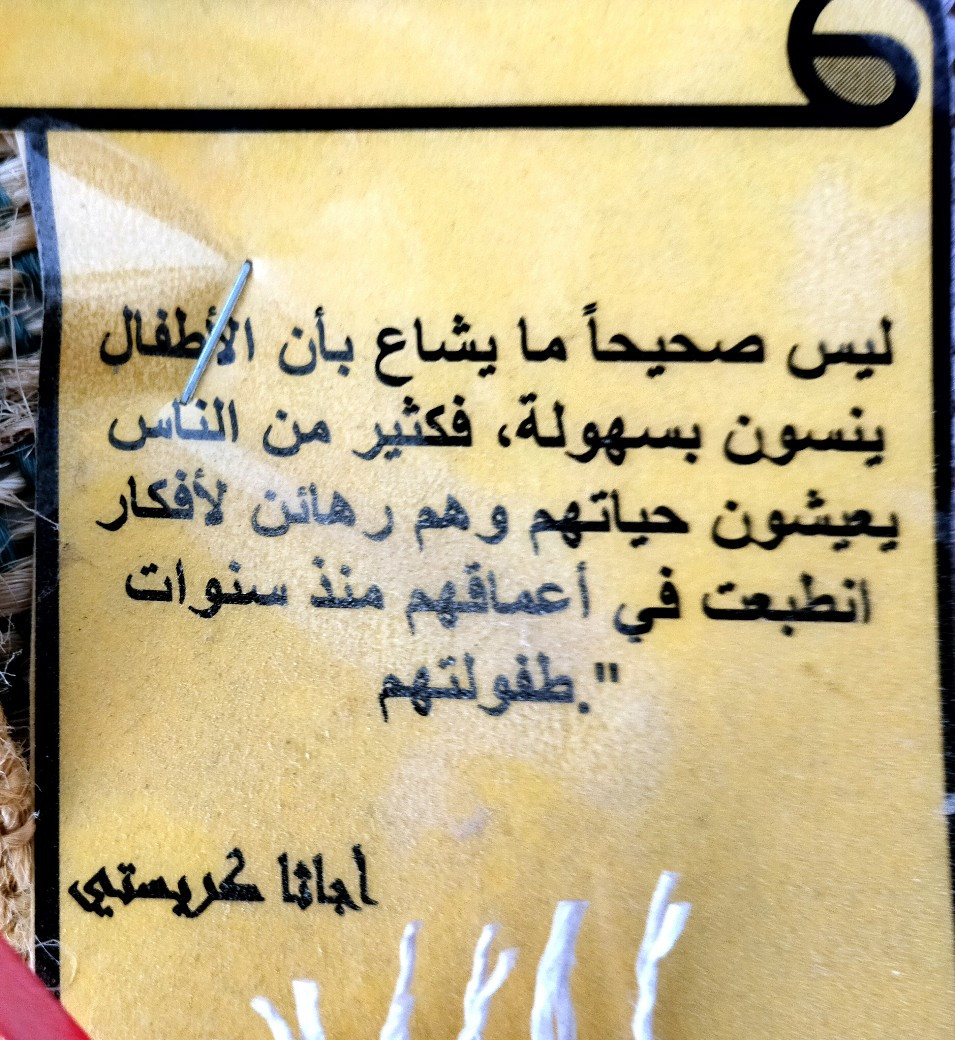 ليس صحيحاً ما يشاع بأن الأطفال
ينسون بسهولة، فكثير من الناس
يعيشون حياتهم وهم رهائن لأفكار
انطبعت في أعماقهم منذ سنوات
".طفولتهم
اجاثا كريستي